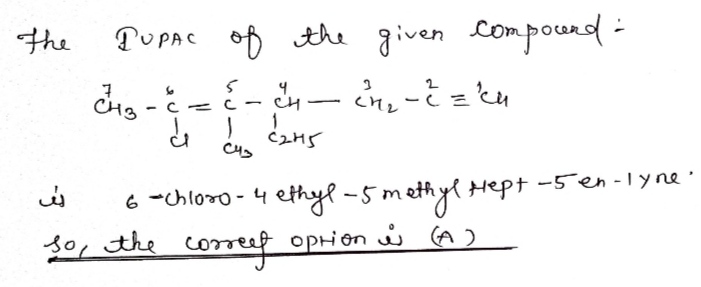 The IUPAC of the given compound :-
7 6 5 4 3 2 1
CH3 - C = C - CH — CH2 - C ≡ CH
Cl CH3 C2H5
is 6-chloro-4 ethyl-5 methyl Hept-5 en-1yne.
So, the correct option is (A)